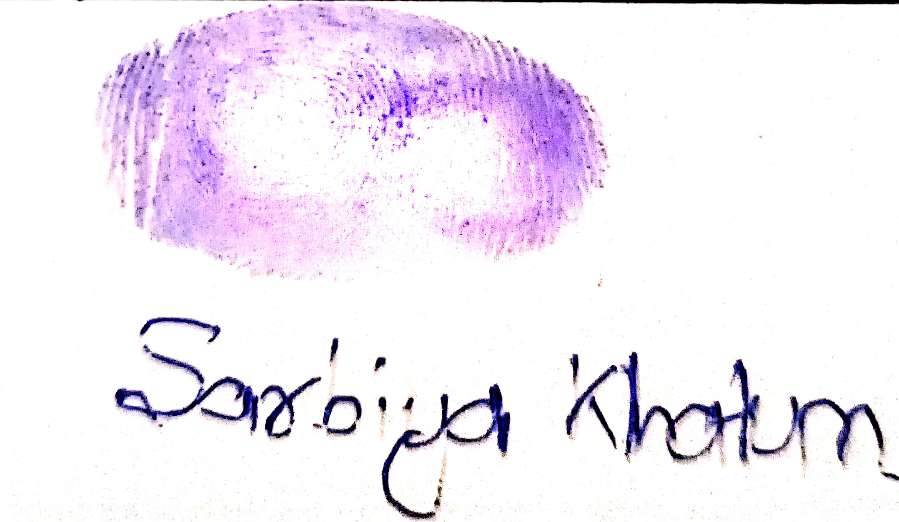 Sarbiya Khatun